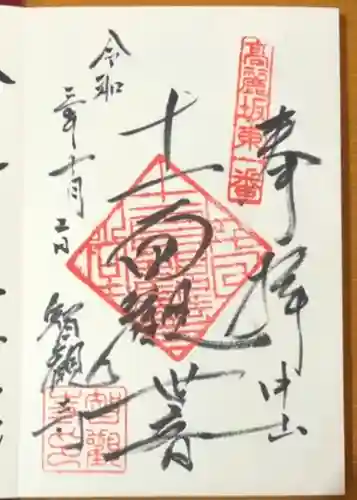 高麗坂東一番
奉拝 中山
十一面観世音
令和三年十一月二日
智観寺